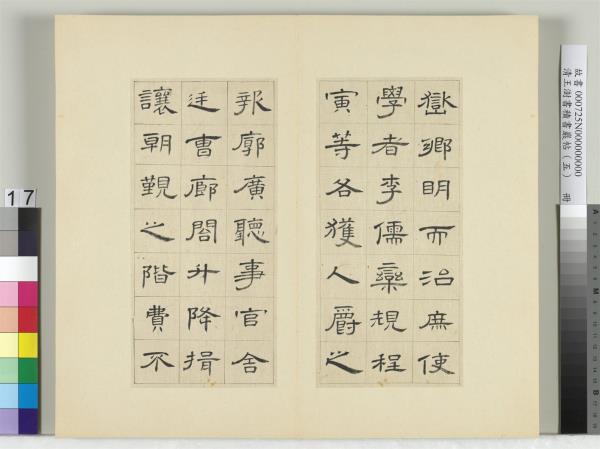 嶽鄉明而治庶使
學者李儒欒規程
寅等各獲人爵之
報廓廣聽事官舍
廷曹廊閤升降揖
讓朝覲之階費不
故書 000725N00000000
清王澍書積書巖帖（五） 冊
17
A
M
B